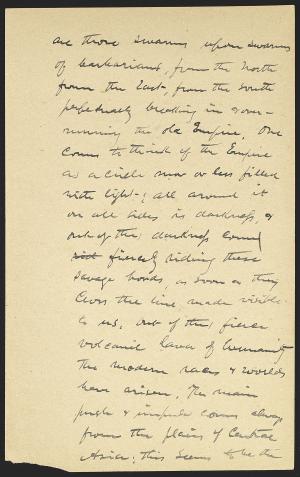 are those swarms upon swarms
of barbarians, from the North
from the East, from the South
perpetually breaking in & over-
running the old Empire. One
comes to think of the Empire
as a circle more or less filled
with light -; all around it
on all sides is darkness, &
out of the darkness come
fiercely riding these
savage hordes, as soon as they
cross the line made visible
to us; out of this fierce
volcanic lava of humanity
the modern races & worlds
have arisen. The main
push & impulse comes always
from the plains of Central
Asia; this seems to be the